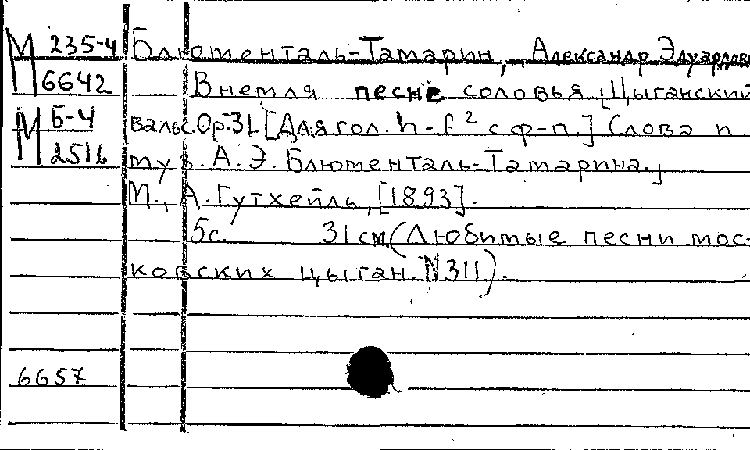 М 235-4 Блюменталь-Тамарин, Александр Эдуардов
6642 Внемля песне соловья. Цыганский
М Б-4 вальс. Ор. 31. [Для гол. h-f² с ф-п.] Слова и
2516 муз. А. Э. Блюменталь-Тамарина.
М., А. Гутхейль, [1893].
5с. 31см (Любимые песни мос-
ковских цыган. N311).
6657